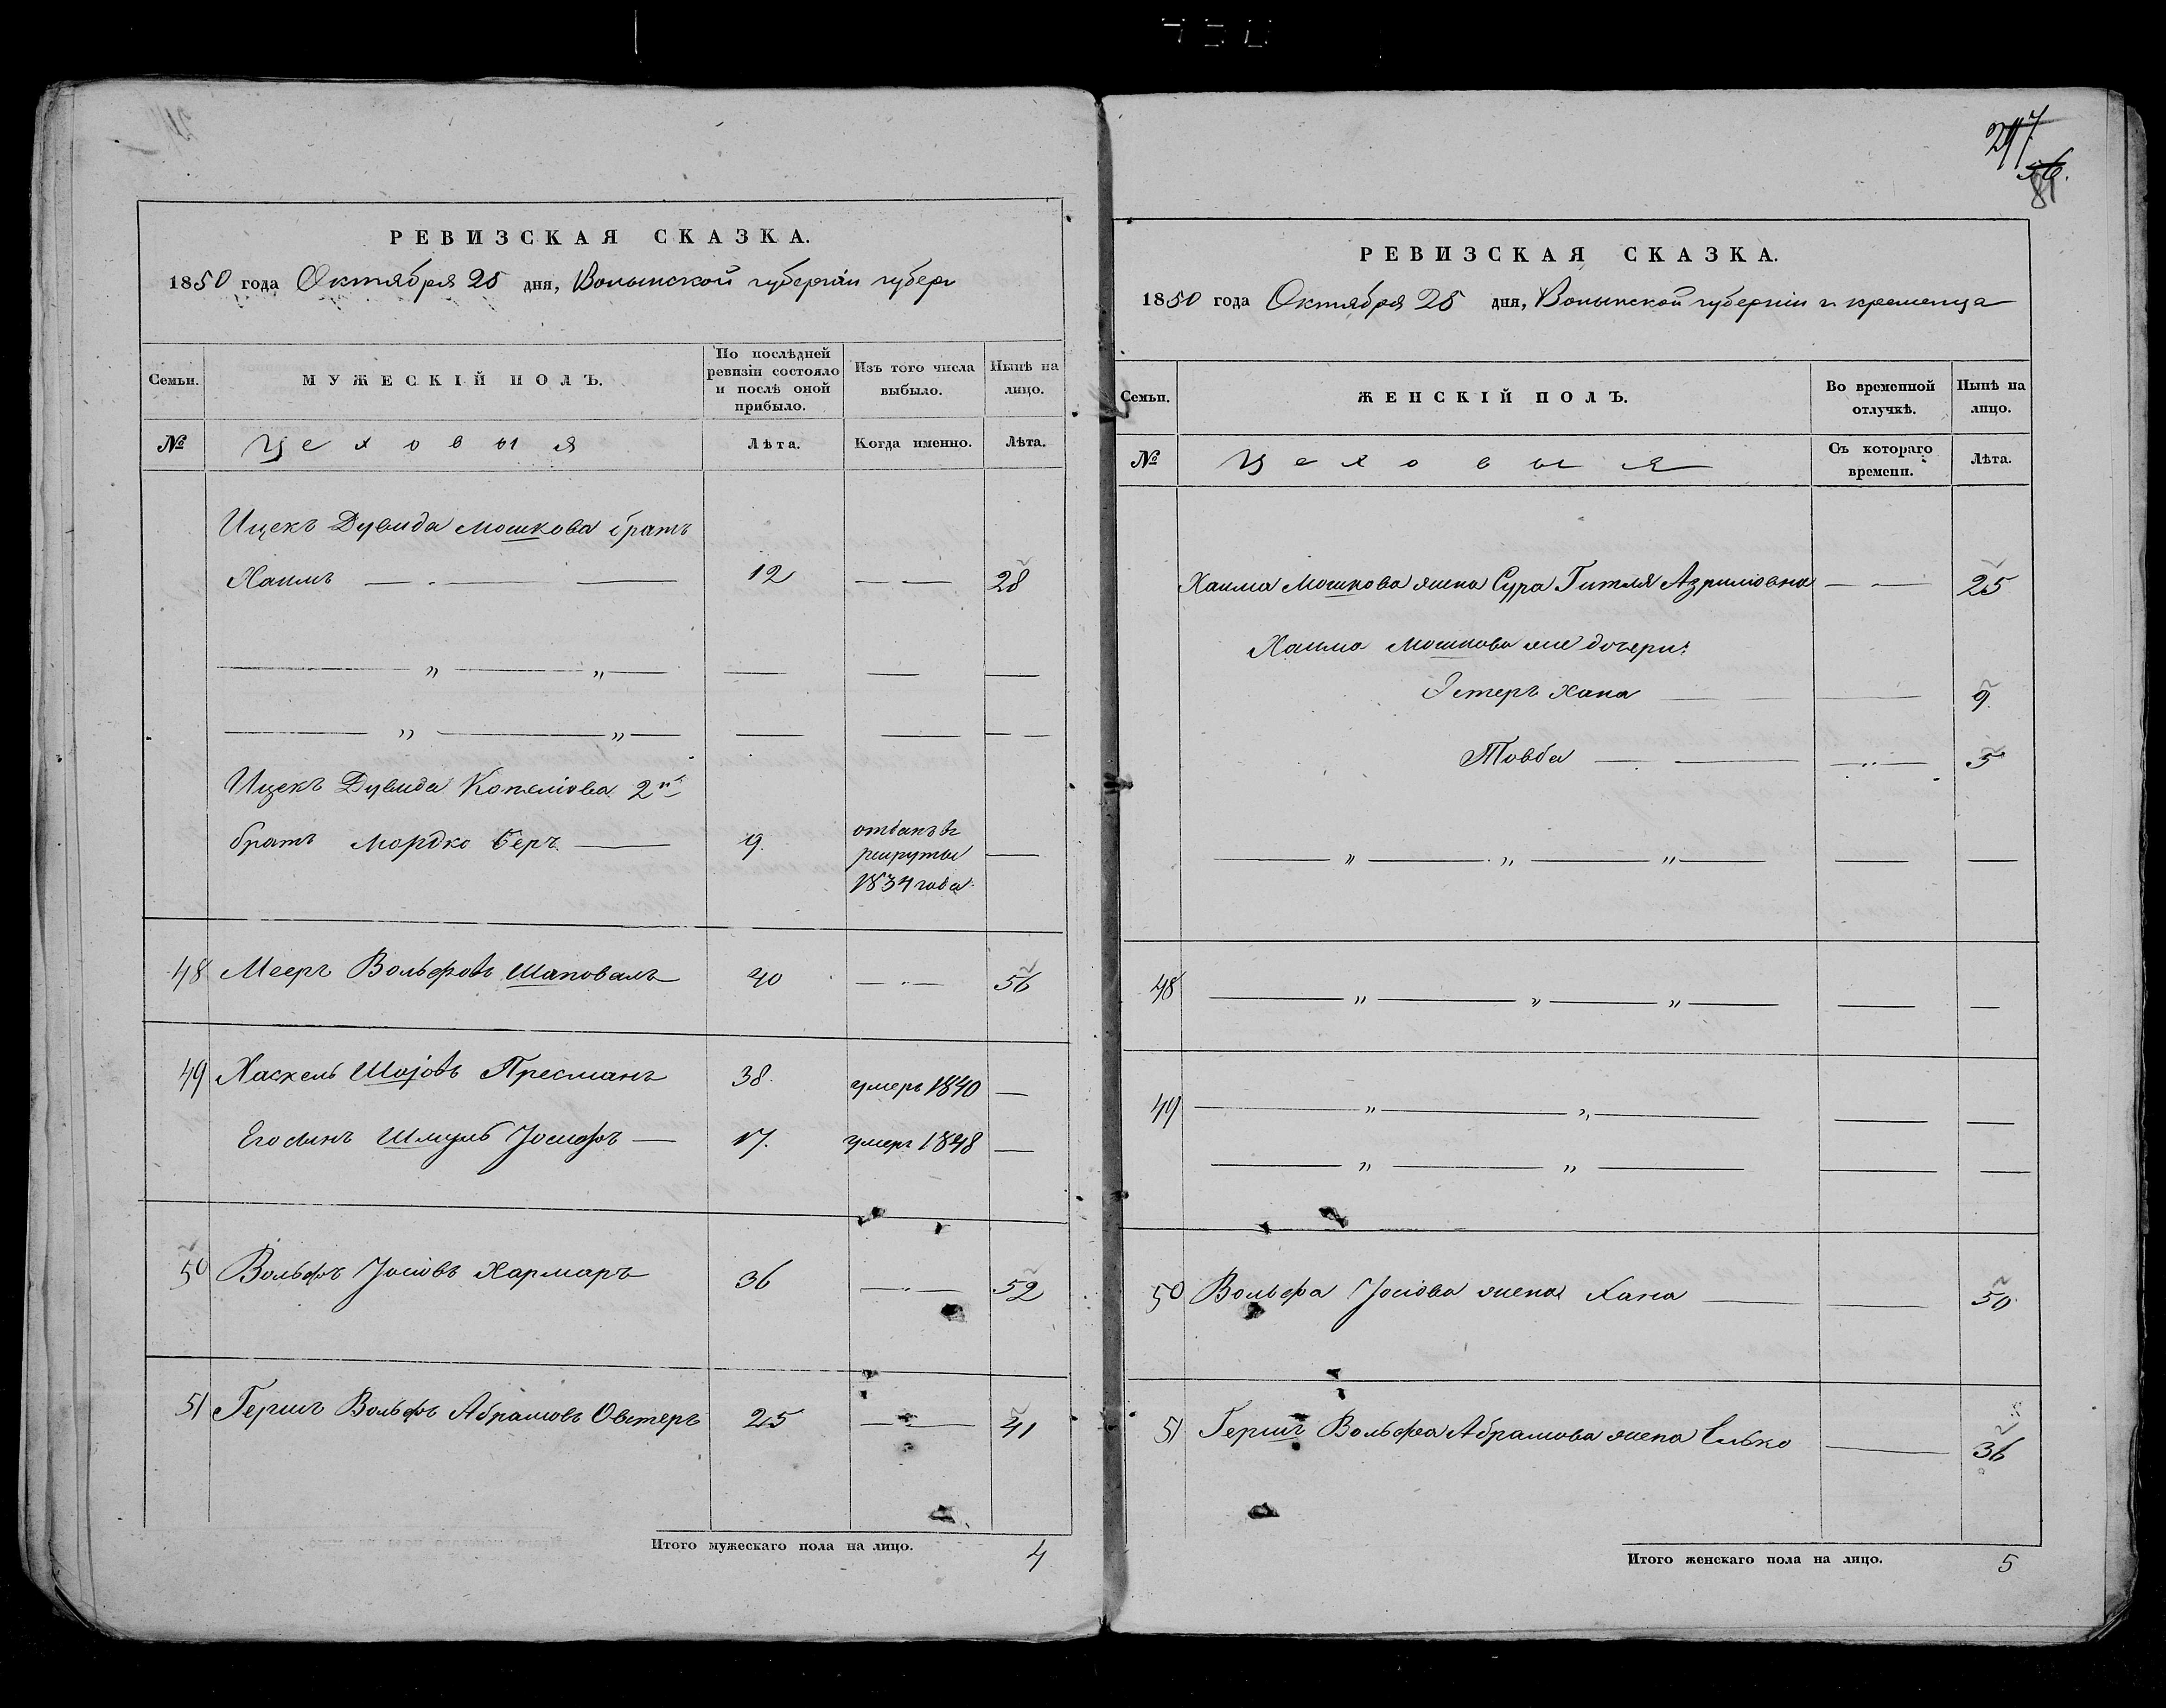 247
56.
81
РЕВИЗСКАЯ СКАЗКА.
1850 года Октября 25 дня, Волынской губерніи губерн
Семьи.
МУЖЕСКІЙ ПОЛЪ.
По послѣдней ревизіи состояло и послѣ оной прибыло.
Изъ того числа выбыло.
Нынѣ на лицо.
№
Цеховыя
Лѣта.
Когда именно.
Лѣта.
Ицекъ Дувида Мошкова братъ
Хаимъ — 12 — 28
— „ — „ — — — —
— „ — „ — — — —
Ицекъ Дувида Копелiова 2й
братъ Мордко Беръ — 19. отданъ въ рекруты 1834 года —
48 Мееръ Вольфовъ Шаповалъ 40 — 56
49 Хаскель Шоіовъ Пресманъ 38. умеръ 1840 —
Его сынъ Шмуль Іосифъ — 17. умеръ 1848 —
50 Вольфъ Іосіовъ Хармаръ 36 — 52
51 Гершъ Вольфъ Абрамовъ Овстеръ 25 — 41
Итого мужескаго пола на лицо. 4
РЕВИЗСКАЯ СКАЗКА.
1850 года Октября 25 дня, Волынской губерніи г. кременца
Семьи.
ЖЕНСКІЙ ПОЛЪ.
Во временной отлучкѣ.
Нынѣ на лицо.
№
Цеховыя
Съ котораго времени.
Лѣта.
Хаима Мошкова жена Сура Гитля Азрилiовна — 25
Хаима Мошкова же дочери:
Эстеръ Хана — — 9.
Товба — — 5
— „ — „ — „ — — —
48 — „ — „ — „ — — —
49 — „ — „ — — —
— „ — „ — — —
50 Вольфа Іосіова жена Хана — — 50
51 Гершъ Вольфа Абрамова жена Элько — 36
Итого женскаго пола на лицо. 5